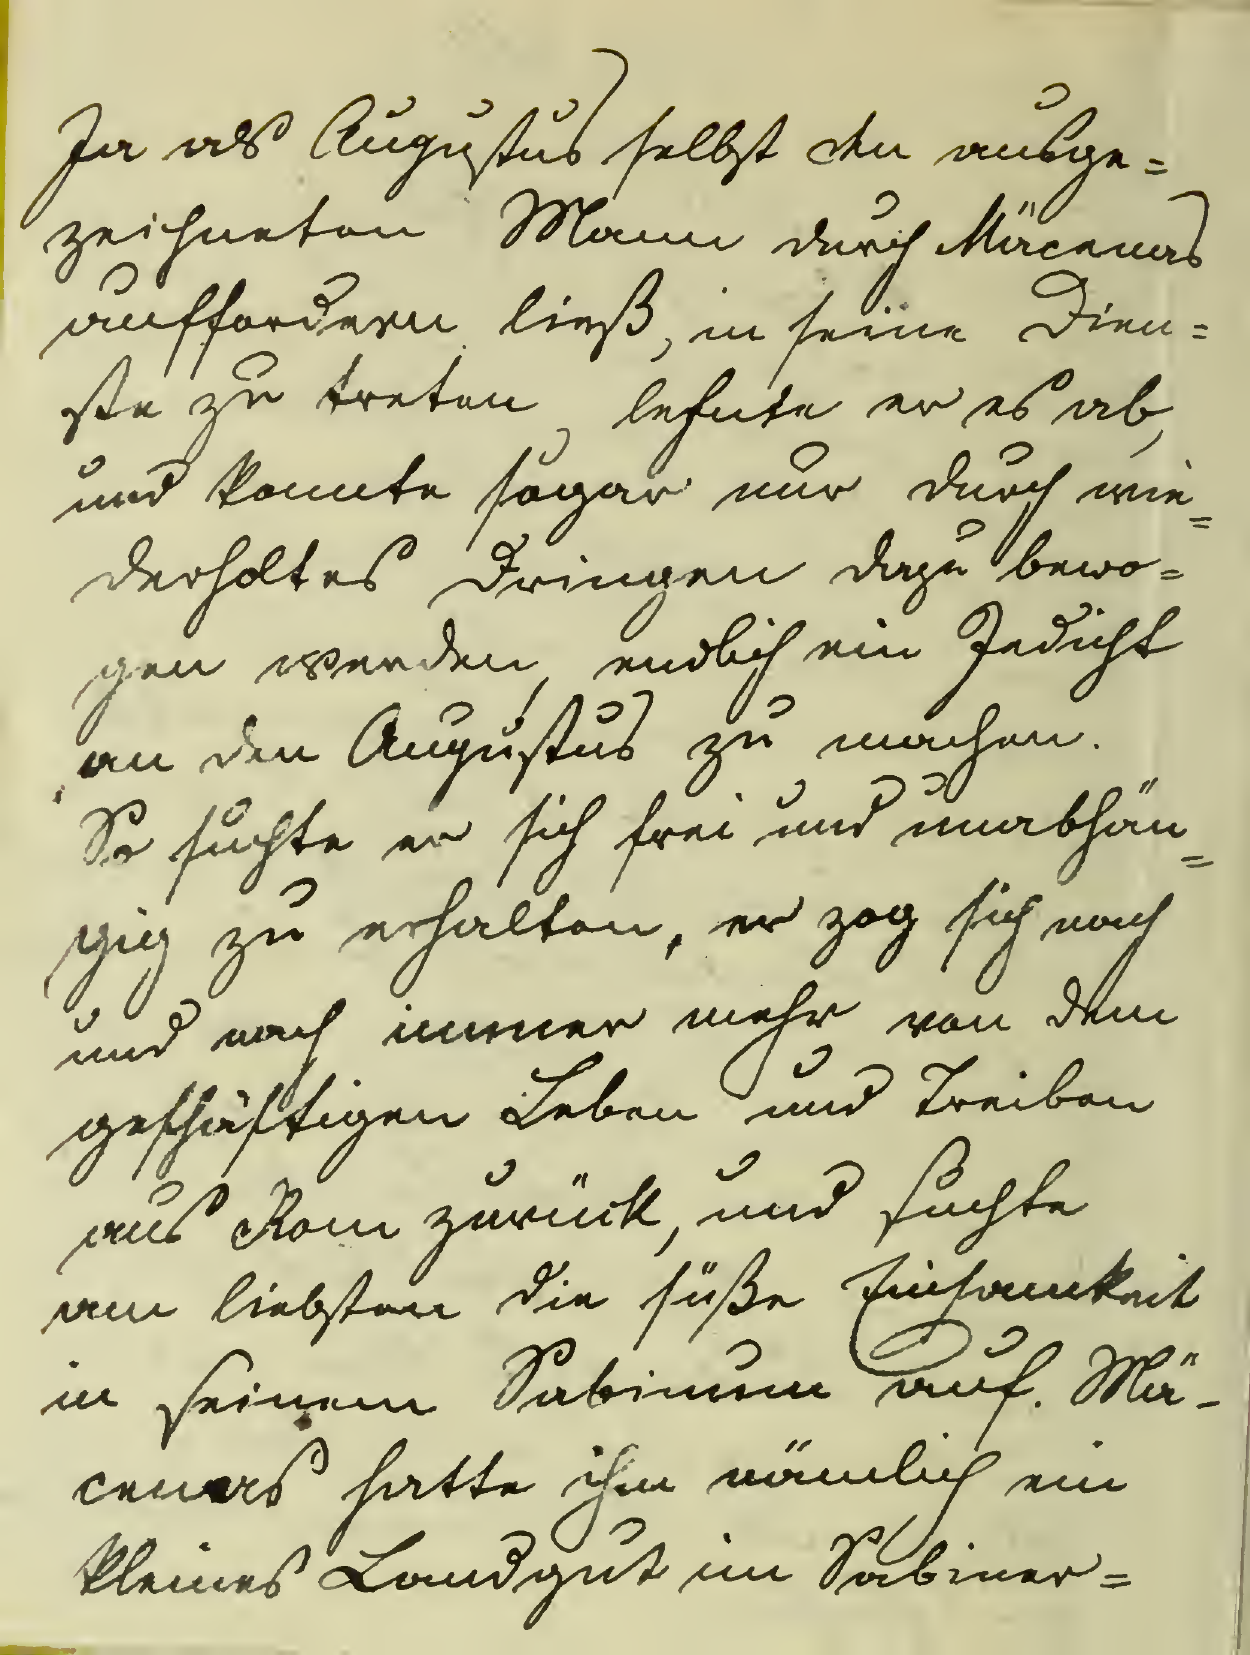 Ja als Augustus selbst den ausge=
zeichneten Mann durch Mäcenas
auffordern ließ, in seine Dien=
ste zu treten, lehnte er es ab,
und konnte sogar nur durch wie=
derholtes Dringen dazu bewo=
gen werden, endlich ein Gedicht
an den Augustus zu machen.
So suchte er sich frei und unabhän=
gig zu erhalten, er zog sich nach
und nach immer mehr von dem
geschäftigen Leben und Treiben
aus Rom zurück, und suchte
am liebsten die süße Einsamkeit
in seinem Sabinum auf. Mä-
cenas hatte ihm nämlich ein
kleines Landgut im Sabiner=